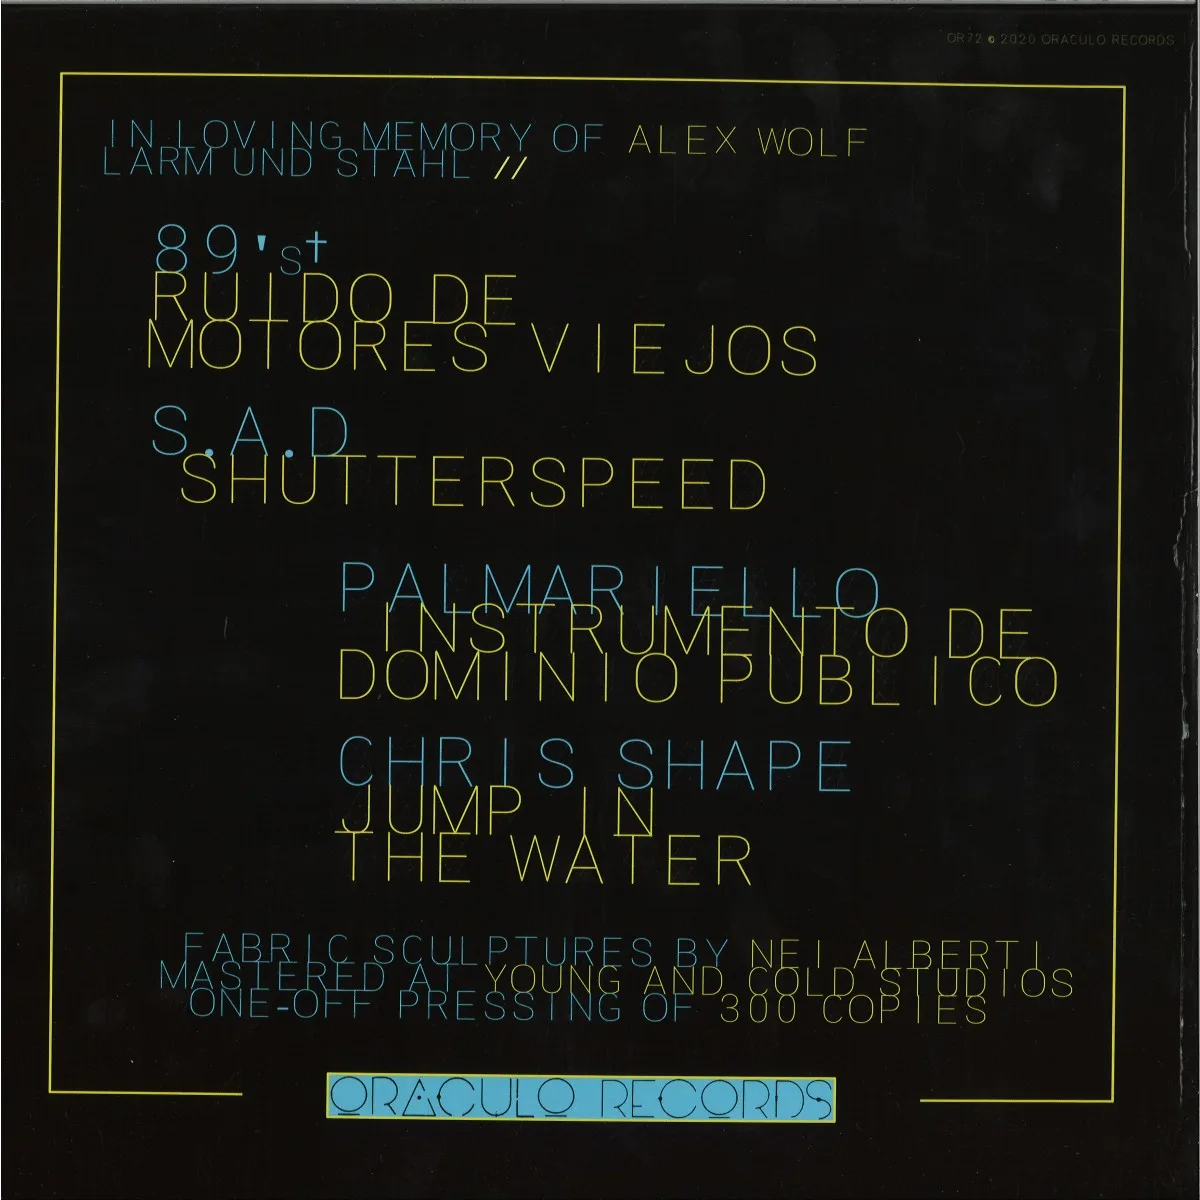 OR72 © 2020 ORACULO RECORDS
IN LOVING MEMORY OF ALEX WOLF
LARM UND STAHL //
89's†
RUIDO DE
MOTORES VIEJOS
S.A.D
SHUTTERSPEED
PALMARIELLO
INSTRUMENTO DE
DOMINIO PUBLICO
CHRIS SHAPE
JUMP IN
THE WATER
FABRIC SCULPTURES BY NEI ALBERTI
MASTERED AT YOUNG AND COLD STUDIOS
ONE-OFF PRESSING OF 300 COPIES
ORACULO RECORDS